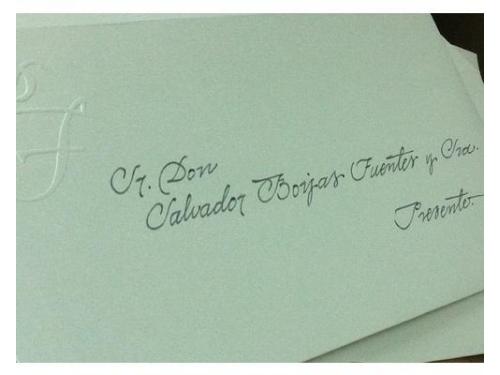 Sr. Don
Salvador Borjas Fuentes y Sra.
Presente.